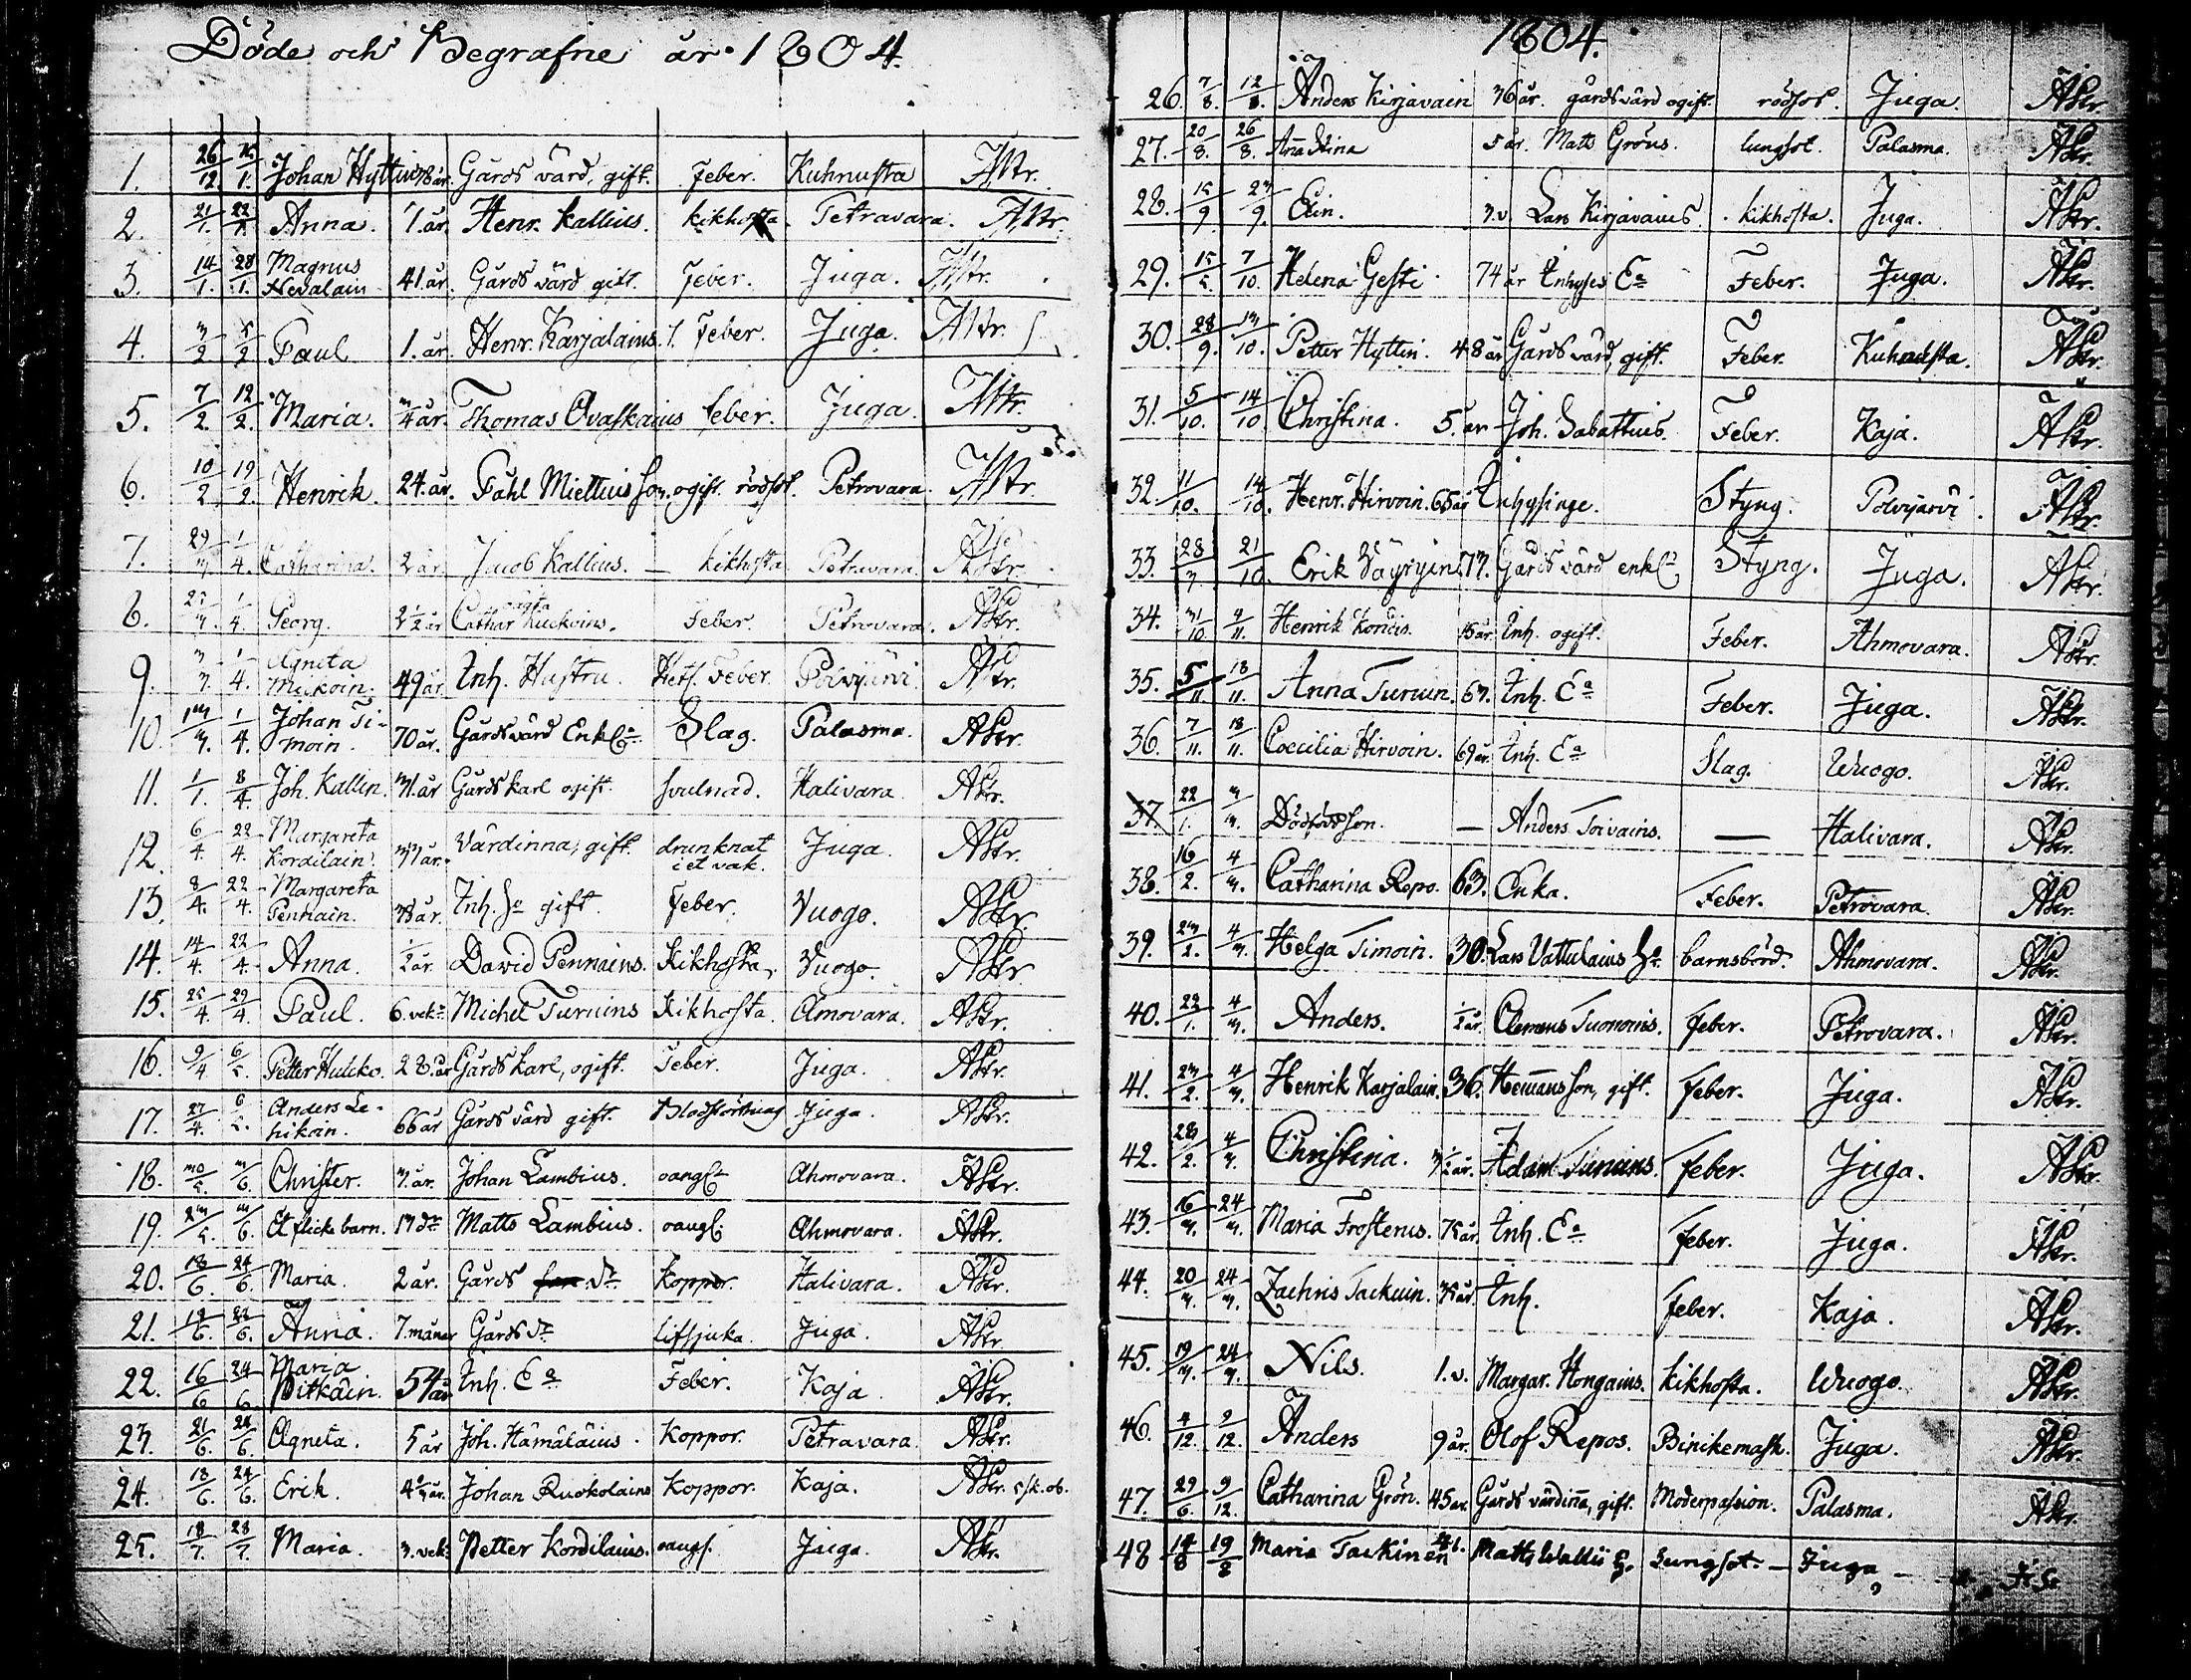 Döde och Begrafne år 1804.
1. 26/12. 15/1. Johan Hyttin 78 år. Gårds värd, gift. Feber. Kuhnusta
2. 21/1. 22/1. Anna. 1. år. Henr. Kallius. kikhosta. Petravara.
3. 14/1. 28/1. Magnus
Nevalain 41. år. Gårds värd gift. Feber. Juga.
4. 3/2 5/2 Paul 1. år. Henr. Karjalains. Feber. Juga.
5. 7/2. 12/2. Maria. 3/4 år. Thomas Ovaskains feber. Juga.
6. 10/2 19/2. Henrik. 24. år. Påhl Miettins son. ogift. rödsot. Petrovara.
7. 29/3. 1/4. Catharina. 2 år. Jacob Kallius. — kikhosta Petravara.
8. 1/4. Georg. 2 1/2 år Cathar Feber. Petrovara.
9. 3/3. 1/4. Agneta
Mickoin. 49 år. Inh. Hustru. Hets. Feber. Polvijärvi
10. 13/3. 1/4. Johan Ti-
moin. 70 år. Gårds värd Enkl. Slag. Palasma.
11. 1/1. 8/4. Joh. Kallin. 31. år Gårds karl ogift. svulnad. Halivara.
12. 6/4. 22/4. Margareta
Kordilain. 33 år. Värdinna, gift. drunknat
i et vak. Juga.
13. 8/4. 22/4. Margareta
Pennain. Inh. Hu gift. Feber. Vuogo.
14. 14/4. 22/4. Anna. 1/2 år. David Pennains. Kikhosta. Vuogo.
15. 25/4. 29/4. Paul. 6. vekr Michel Turuins Kikhosta. Amovara.
16. 9/4 6/5. Petter Hulcko. 28. år Gårds karl, ogift. Feber. Juga.
17. 27/4. 6/5. Anders Le-
hikoin. 66 år Gårds värd gift. Blodstörtning Juga.
18. 30/5. 3/6. Christer. 3. år. Johan Lambius. oangl. Ahmovara.
19. 23/5. 3/6. Et flicke barn. 13 dr Matts Lambius. oangl. Ahmovara.
20. 18/6. 24/6. Maria. 2 år. Gårds dr. Koppor. Halivara.
21. Anna. 7. månar Gårds dr lifsjuka. Juga.
22. 16/6 24/6. Maria
Pitkäin. 54 år Inh. Ea Feber. Kaja.
23. 21/6. 24/6. Agneta. 5 år Joh. Hämäläins. Koppor. Petravara.
24. 18/6. 24/6. Erik. Johan Ruokolains Koppor. Kaja.
25. 18/7. 28/7. Maria. 3. vek. Petter Kordilains. oangl. Juga.
1804.
26. 7/8. 12/8. Anders Kirjavain 36 år. gårds värd ogift. rödsot. Juga.
27. 20/8. 26/8. Anna Stina 5 år. Matts Gröns. lungsot. Palasma.
28. 15/9. 23/9. Elin. 3. v. Lars Kirjavains. kikhosta. Juga.
29. 15/5. 7/10. Helena Gesti. 74 år Inhyses Ea Feber. Juga.
30. 28/9. 13/10. Petter Hyttin. 48 år Gårds värd, gift. Feber. Kuhnusta.
31. 5/10. 14/10. Christina. 5. år Joh. Sabattius Feber. Kaja.
32. 11/10. 14/10. Henr. Hirvoin. 65 år Inhysinge. Styng. Polvijarvi.
33. 28/3. 21/10. Erik Väyryin. 73. Gårds värd enkl. Styng. Juga.
34. 31/10 4/11. Henrik 15 år. Inh. ogift. Feber. Ahmovara.
35. 5/11 18/11. Anna Turuin. 63. Inh. Ea Feber. Juga.
36. 7/11. 18/11. Coecilia Hirvoin. 69 år. Inh. Ea Slag. Wuogo.
37. 22/1. Dödfödd son. — Anders Toivains. — Halivara.
38. 16/2. 4/3. Catharina Repo. 63. Enka. Feber. Petrovara.
39. 23/2. 4/3. Helga Timoin. 30. Lars Vattulains Hu. barnsbörd. Ahmovara.
40. 22/1. 4/3. Anders. 1/2 år. Clemens Tuonoins. feber. Petrovara.
41. 23/2. 4/3. Henrik Karjalain. 36. Hemans son, gift. feber. Juga.
42. 28/2. 4/3. Christina. 3 1/2 år. Adam Turuins. feber. Juga.
43. 16/3. 24/3. Maria Frosterus. 75 år. Inh. Ea feber. Juga.
44. 20/3. 24/3. Zachris Tackuin. Inh. feber. Kaja.
45. 19/3. 24/3. Nils. 1. v. Margar. Hongains. kikhosta. Wuogo.
46. 4/12 9/12. Anders 9 år. Olof Repos. Binikemask. Juga.
47. 29/6. 9/12. Catharina Grön. 45 år. Gårds värdinna, gift. Moderpassion. Palasma.
48 14/8 19/8 Maria Tackinen Matts Wallii Lungsot. — Juga